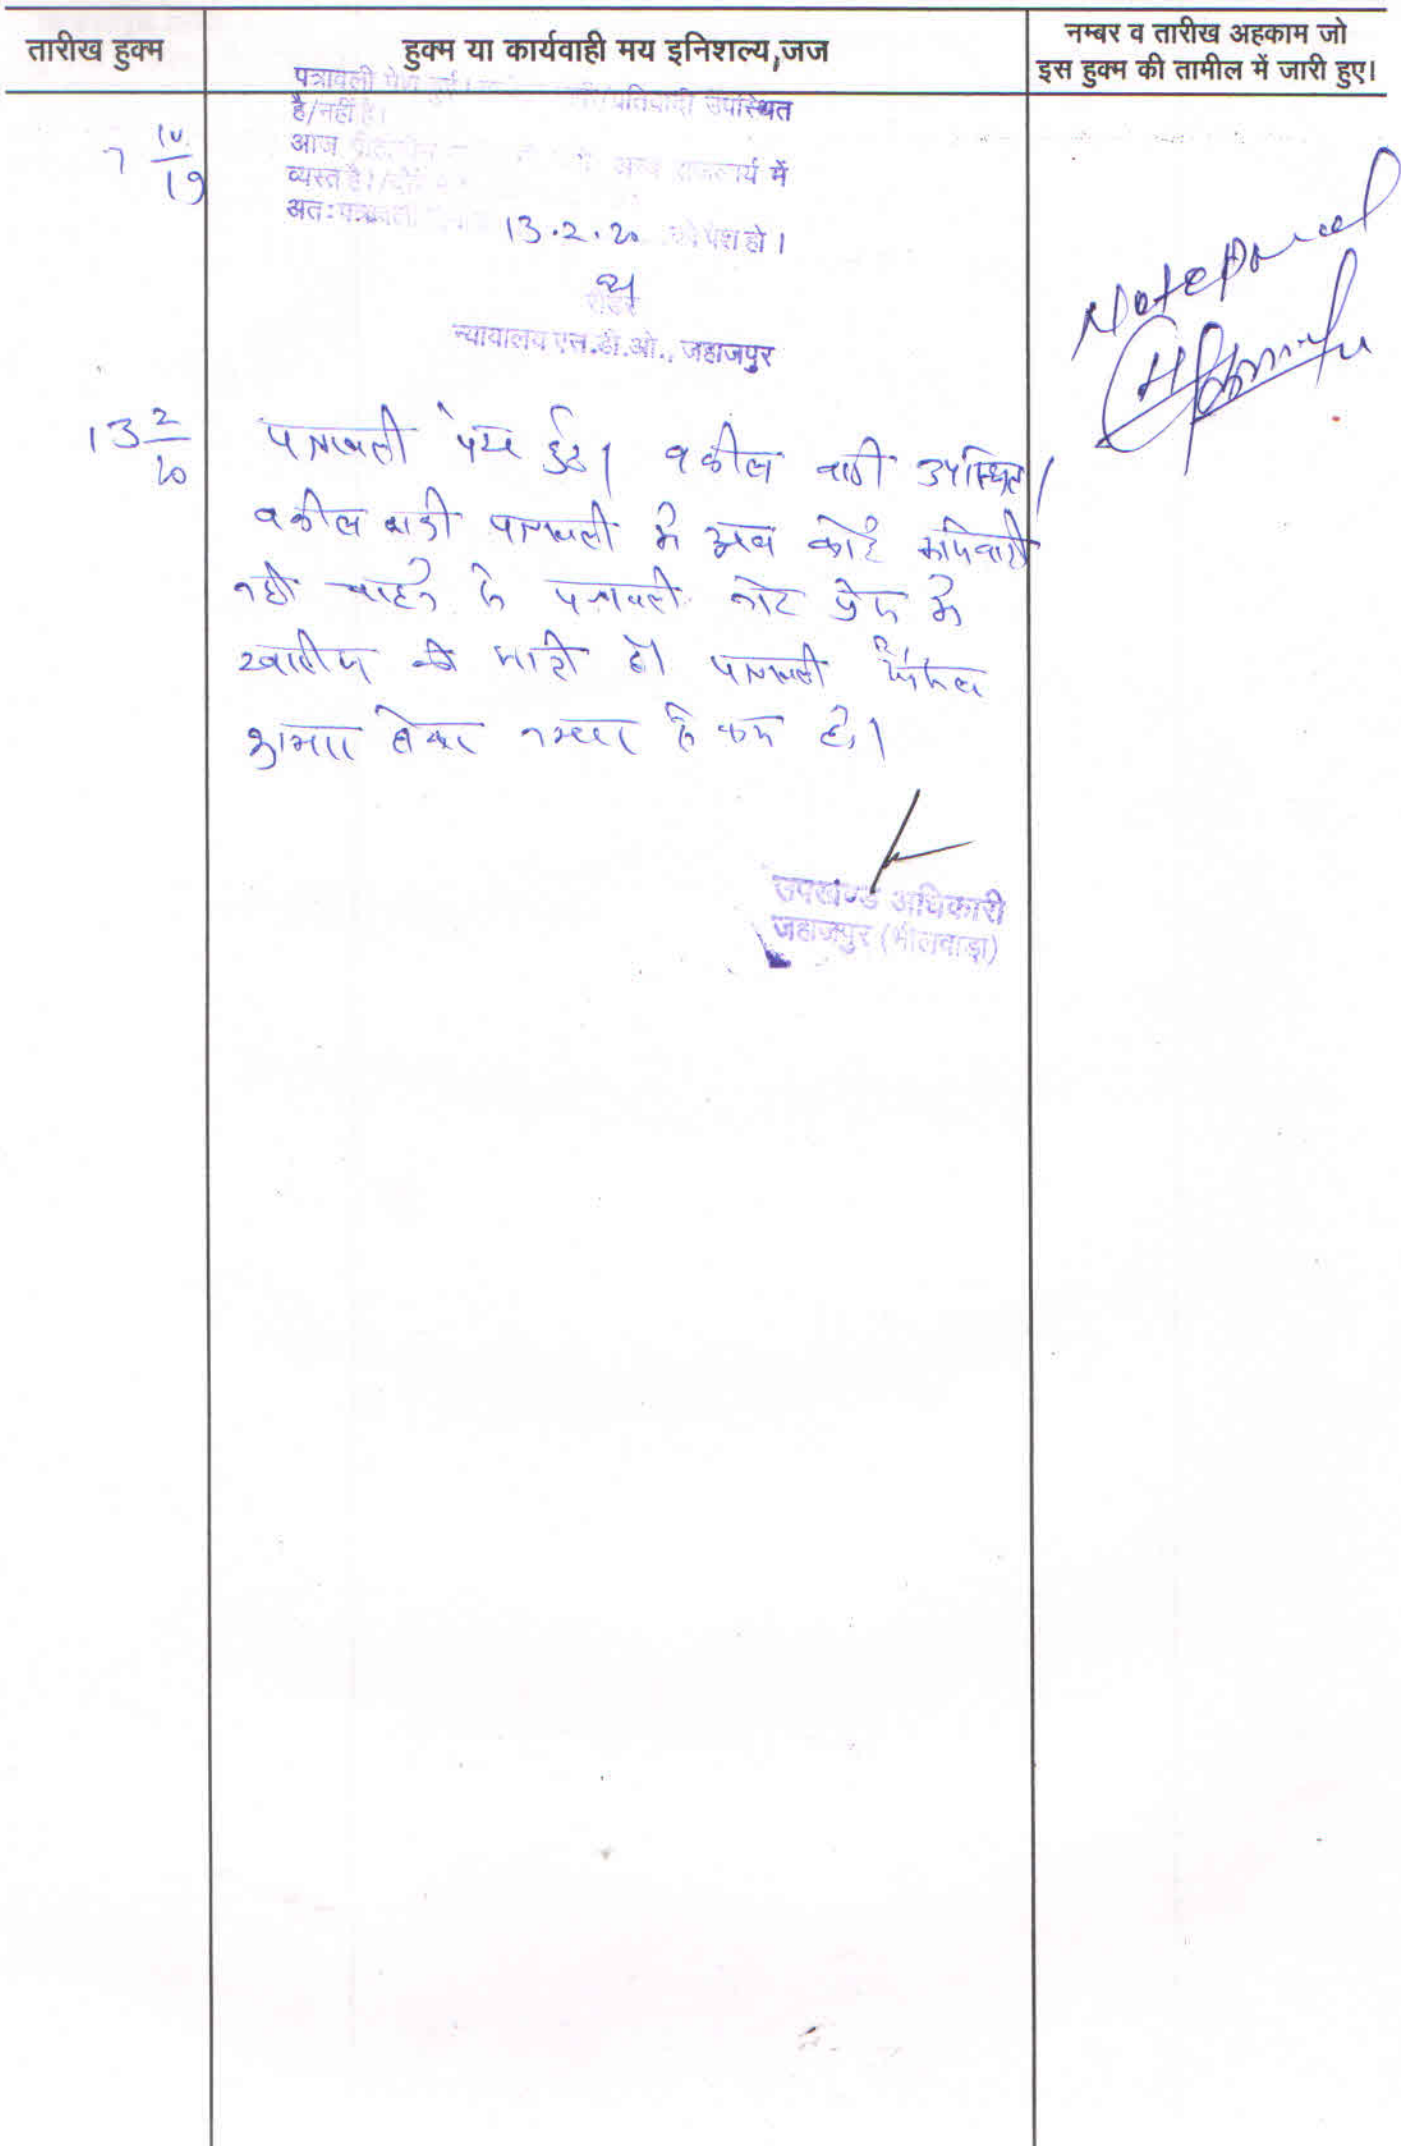 तारीख हुक्म
हुक्म या कार्यवाही मय इनिशल्य,जज
नम्बर व तारीख अहकाम जो
इस हुक्म की तामील में जारी हुए।
पत्रावली पेश हुई। प्रतिवादी उपस्थित
है/नहीं है।
7 10/19
आज अन्य राजकार्य में
व्यस्त है।
अतः पत्रावली
13.2.20 को पेश हो।
रीडर
न्यायालय एस.डी.ओ., जहाजपुर
Note
13 2/20
पत्रावली पेश हुई। वकील वादी उपस्थित।
वकील वादी पत्रावली में अब कोई कार्यवाही
नही चाहते पत्रावली नोट प्रेस में
खारीज की जाती है। पत्रावली फैसल
शुमार होकर नम्बर से कम हो।
उपखण्ड अधिकारी
जहाजपुर (भीलवाड़ा)